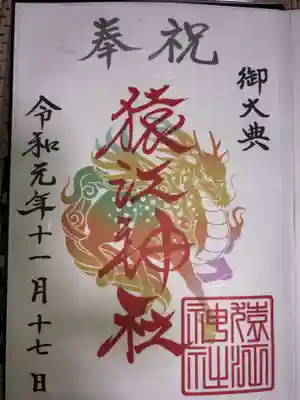 奉祝
御大典
猿江神社
令和元年十一月十七日
猿江
神社